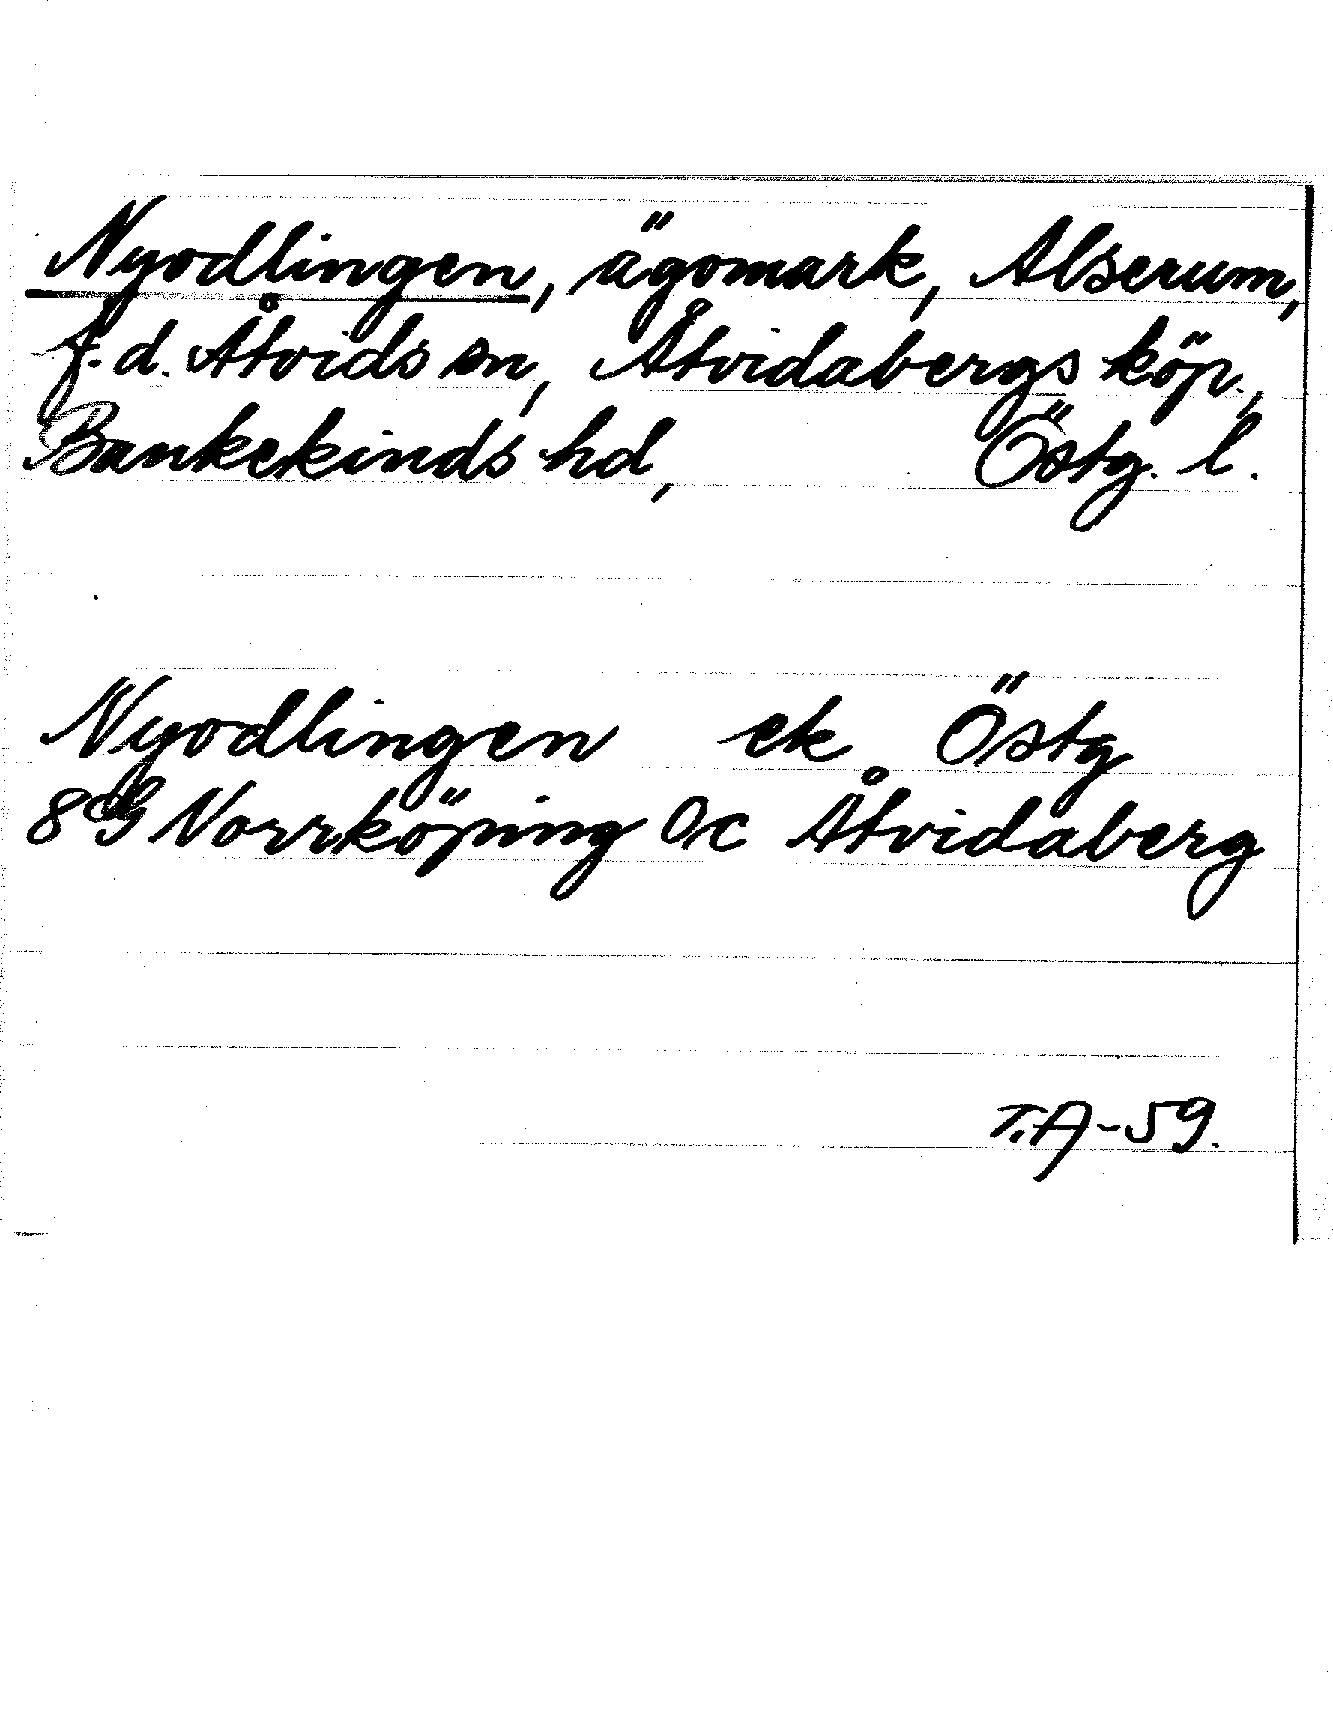 Nyodlingen, ägomark, Alserum,
f.d. Åtvids sn, Åtvidabergs köp.,
Bankekinds hd, Östg. l.
Nyodlingen ek Östg
8G Norrköping Oc Åtvidaberg
T.A-59.